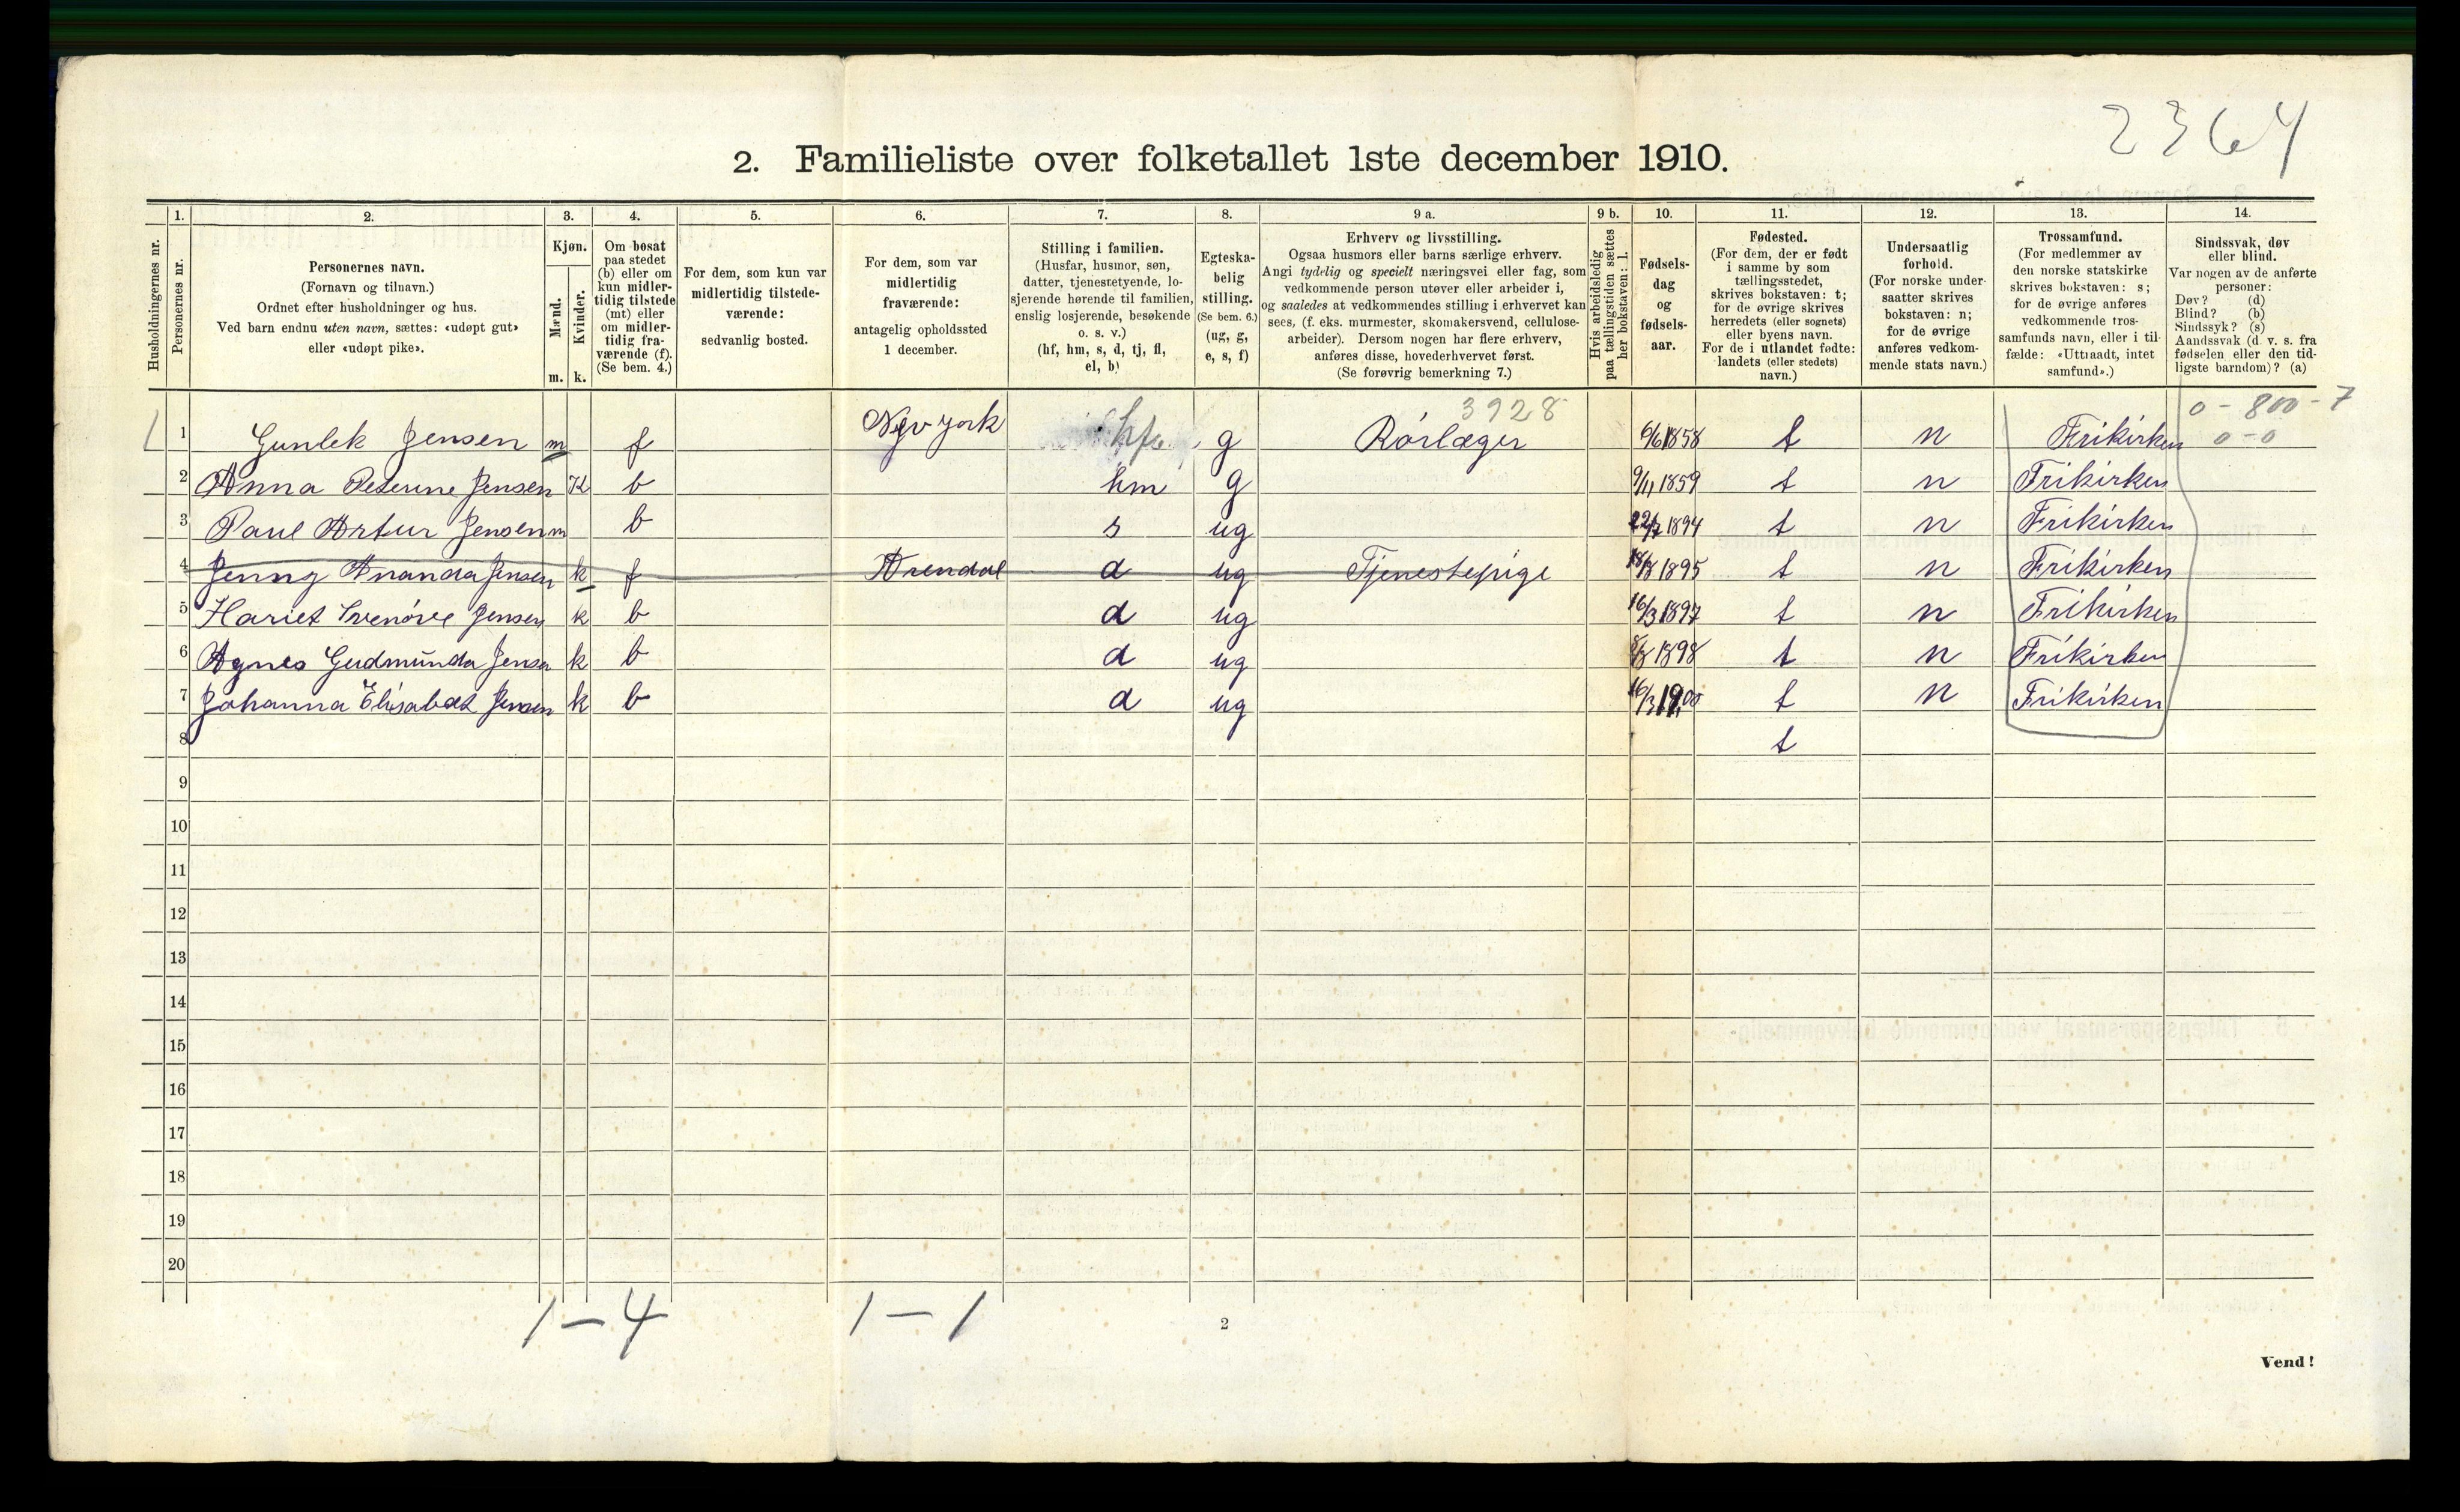 2364
2. Familieliste over folketallet 1ste december 1910.
Husholdningernes nr.
1. Personernes nr.
2. Personernes navn. (Fornavn og tilnavn.) Ordnet efter husholdninger og hus. Ved barn endnu uten navn, sættes: «udøpt gut» eller «udøpt pike».
3. Kjøn. Mænd. m. Kvinder. k.
4. Om bosat paa stedet (b) eller om kun midler-tidig tilstede (mt) eller om midler-tidig fra-værende (f). (Se bem. 4.)
5. For dem, som kun var midlertidig tilstede-værende: sedvanlig bosted.
6. For dem, som var midlertidig fraværende: antagelig opholdssted 1 december.
7. Stilling i familien. (Husfar, husmor, søn, datter, tjenestetyende, lo-sjerende hørende til familien, enslig losjerende, besøkende o. s. v.) (hf, hm, s, d, tj, fl, el, b)
8. Egteska-belig stilling. (Se bem. 6.) (ug, g, e, s, f)
9 a. Erhverv og livsstilling. Ogsaa husmors eller barns særlige erhverv. Angi tydelig og specielt næringsvei eller fag, som vedkommende person utøver eller arbeider i, og saaledes at vedkommendes stilling i erhvervet kan sees, (f. eks. murmester, skomakersvend, cellulose-arbeider). Dersom nogen har flere erhverv, anføres disse, hovederhvervet først. (Se forøvrig bemerkning 7.)
9 b. Hvis arbeidsledig paa tællingstiden sættes her bokstaven: l.
10. Fødsels-dag og fødsels-aar.
11. Fødested. (For dem, der er født i samme by som tællingsstedet, skrives bokstaven: t; for de øvrige skrives herredets (eller sognets) eller byens navn. For de i utlandet fødte: landets (eller stedets) navn.)
12. Undersaatlig forhold. (For norske under-saatter skrives bokstaven: n; for de øvrige anføres vedkom-mende stats navn.)
13. Trossamfund. (For medlemmer av den norske statskirke skrives bokstaven: s; for de øvrige anføres vedkommende tros-samfunds navn, eller i til-fælde: «Uttraadt, intet samfund».)
14. Sindssvak, døv eller blind. Var nogen av de anførte personer: Døv? (d) Blind? (b) Sindssyk? (s) Aandssvak (d. v. s. fra fødselen eller den tid-ligste barndom)? (a)
3928 0 - 800 - 7
1 Gunlek Jensen m f New york hf g Rörlæger 6/6 1858 t n Frikirken 0 - 0
2 Anna Peterine Jensen K b hm g 9/11 1859 t n Frikirken
3 Paul Artur Jensen m b s ug 22/7 1894 t n Frikirken
4 Jenny Ananda Jensen k f Arendal d ug Tjenestepige 18/8 1895 t n Frikirken
5 Hariet Jensen k b d ug 16/3 1897 t n Frikirken
6 Agnes Gudmunda Jensen k b d ug 1898 t n Frikirken
7 Johanna Elisabet Jensen k b d ug 16/3 1900 t n Frikirken
8 t
9
10
11
12
13
14
15
16
17
18
19
20
1 - 4 1 - 1
2
Vend!